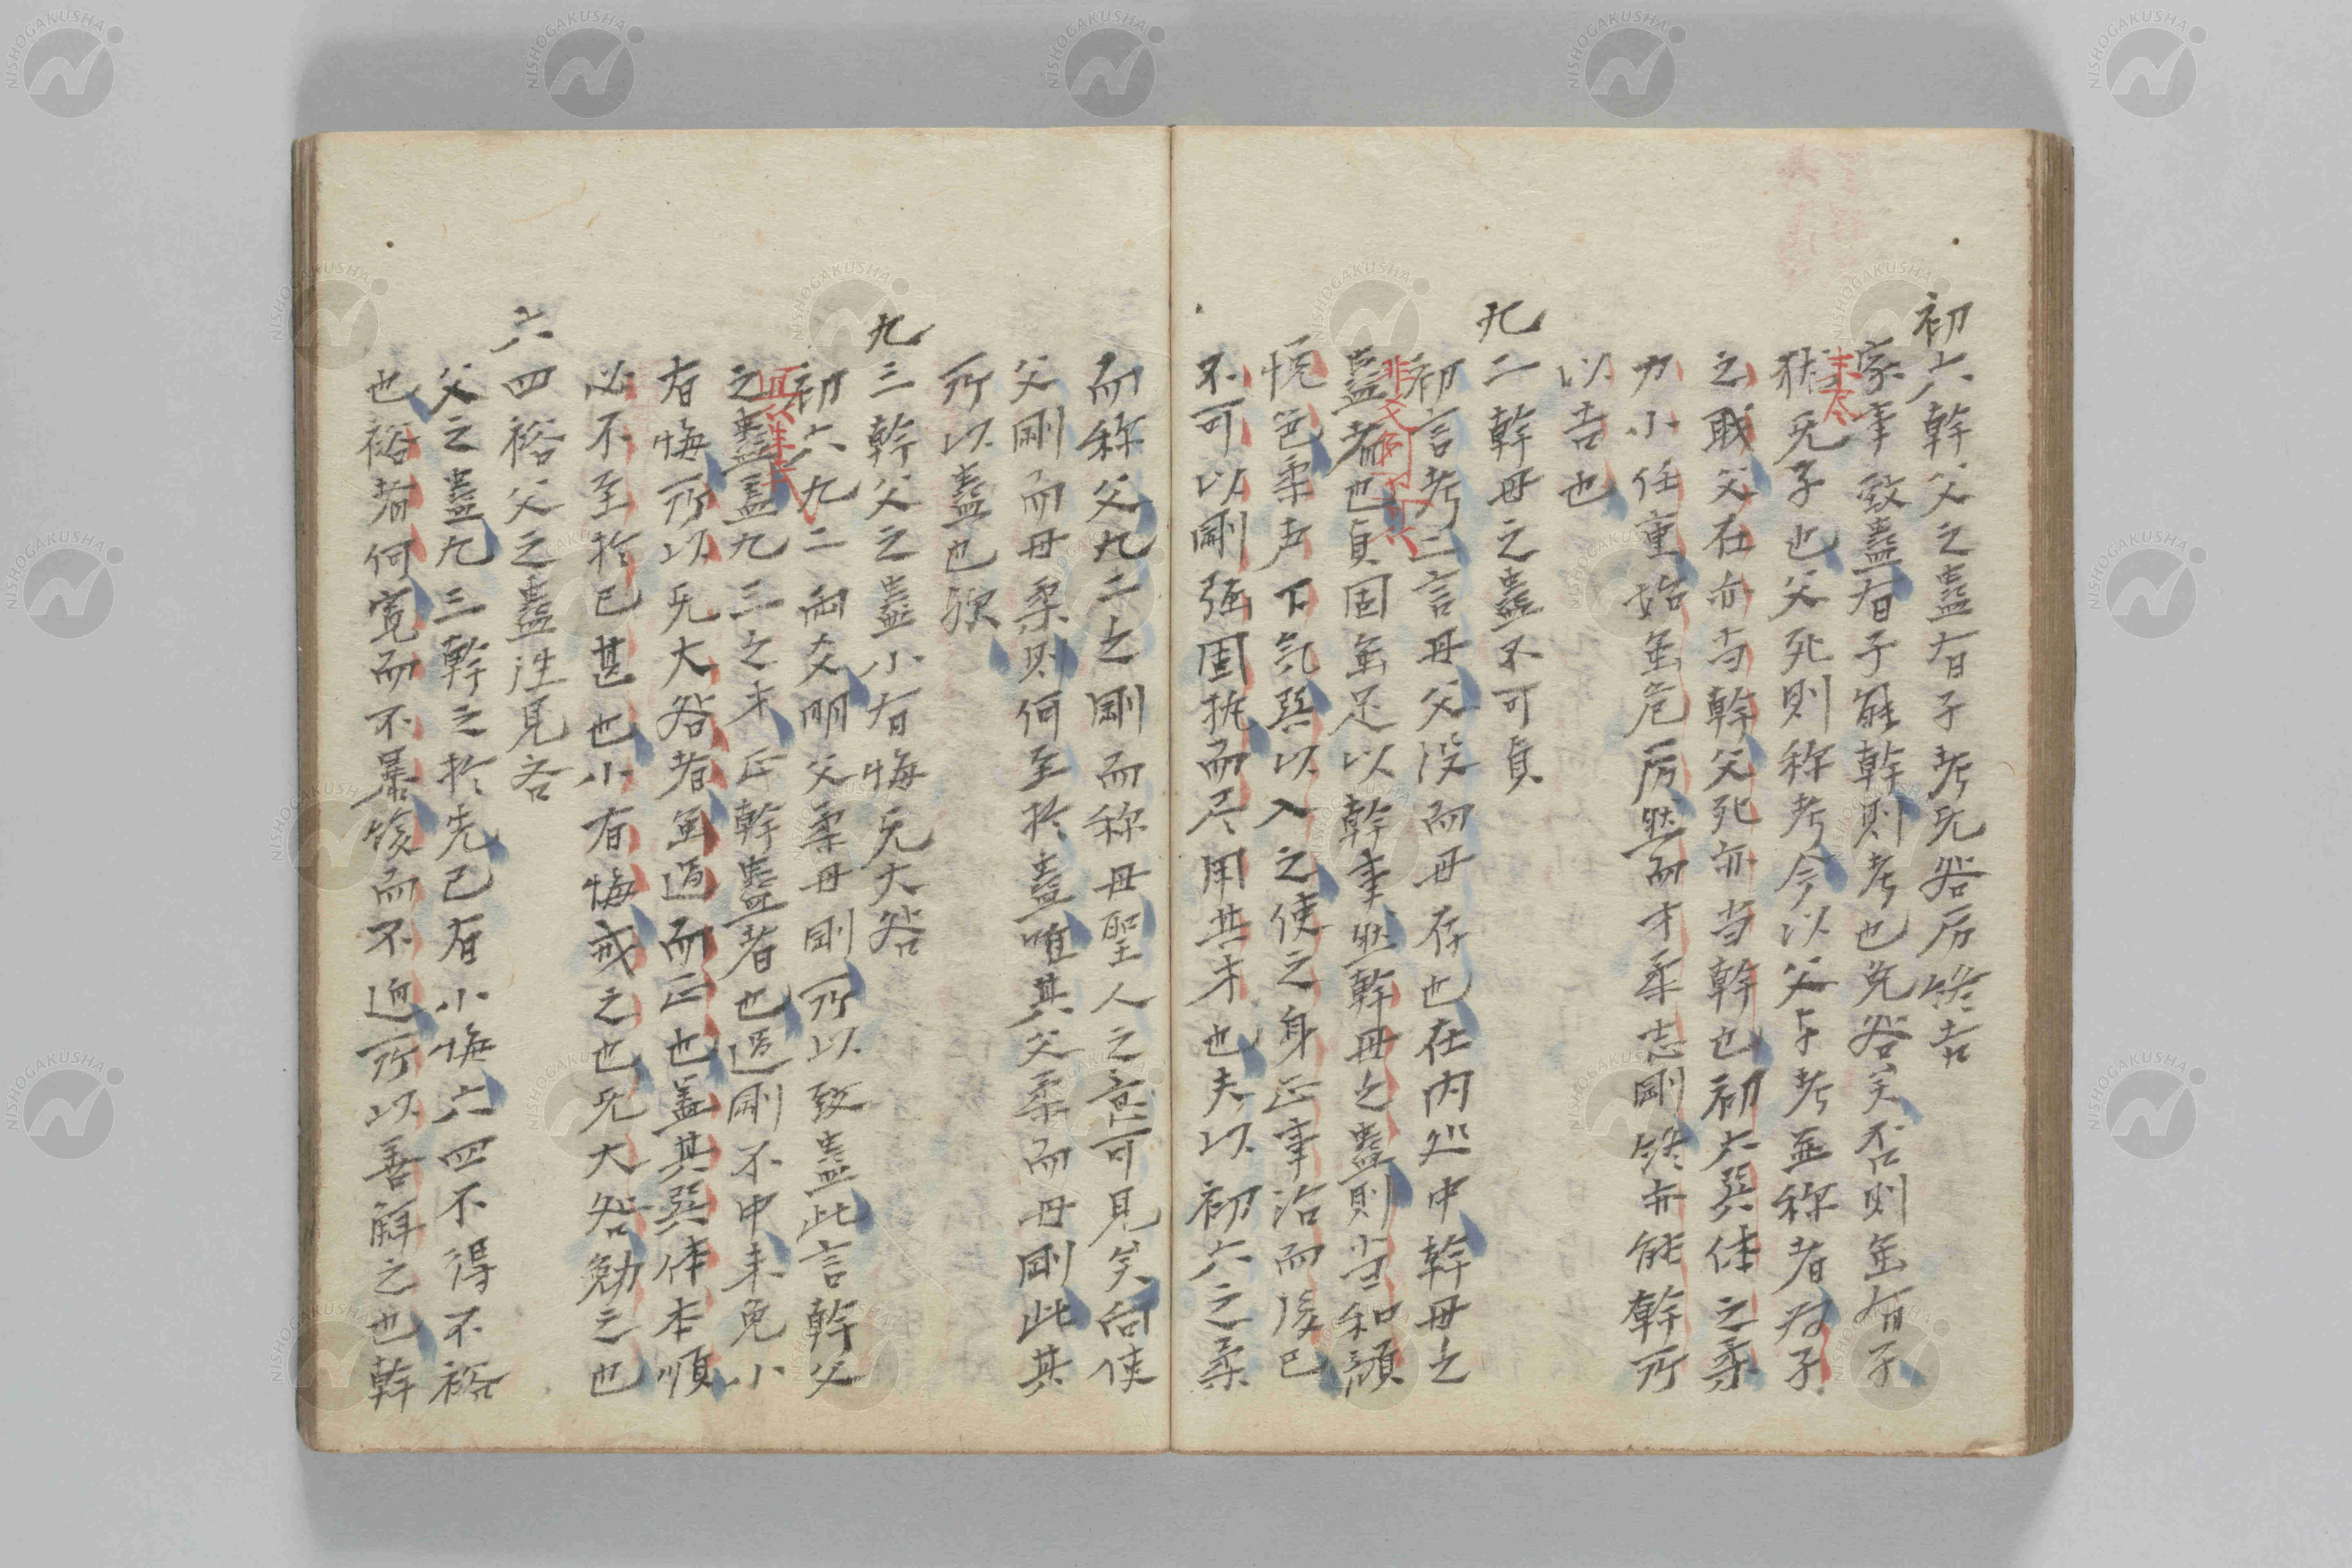 初六幹父之蠱有子考无咎厉終吉
家事致蠱有子能幹則考也免咎矣否則虽有子
未尽
猶无子也父死則称考今以父与考並称者为子
之戝父在亦当幹父死亦当幹也初六巽体之柔
力小任重始虽危厉然而才柔志剛終亦能幹所
以吉也
九二幹母之蠱不可貞
初言考二言母父没而母存也在内处中幹母之
非文例
蠱者也貞固虽足以幹事然幹母之蠱則当和顔
悦色柔声下気巽以入之使之身正事治而後已
不可以剛强固执而尽用其才也夫以初六之柔
而称父九二之剛而称母聖人之意可見矣向使
父剛而母柔則何至於蠱唯其父柔而母剛此其
所以蠱也欤
九三幹父之蠱小有悔无大咎
初六九二両爻明父柔母剛所以致蠱此言幹父
之蠱盖九三之才正幹蠱者也過剛不中未免小
有悔所以无大咎者虽過而正也盖其巽体本順
必不至於已甚也小有悔戒之也无大咎勉之也
六四裕父之蠱往見吝
父之蠱九三幹之於先已有小悔六四不得不裕
也裕者何寛而不暴緩而不迫所以善解之也幹
NISHOGAKUSHA